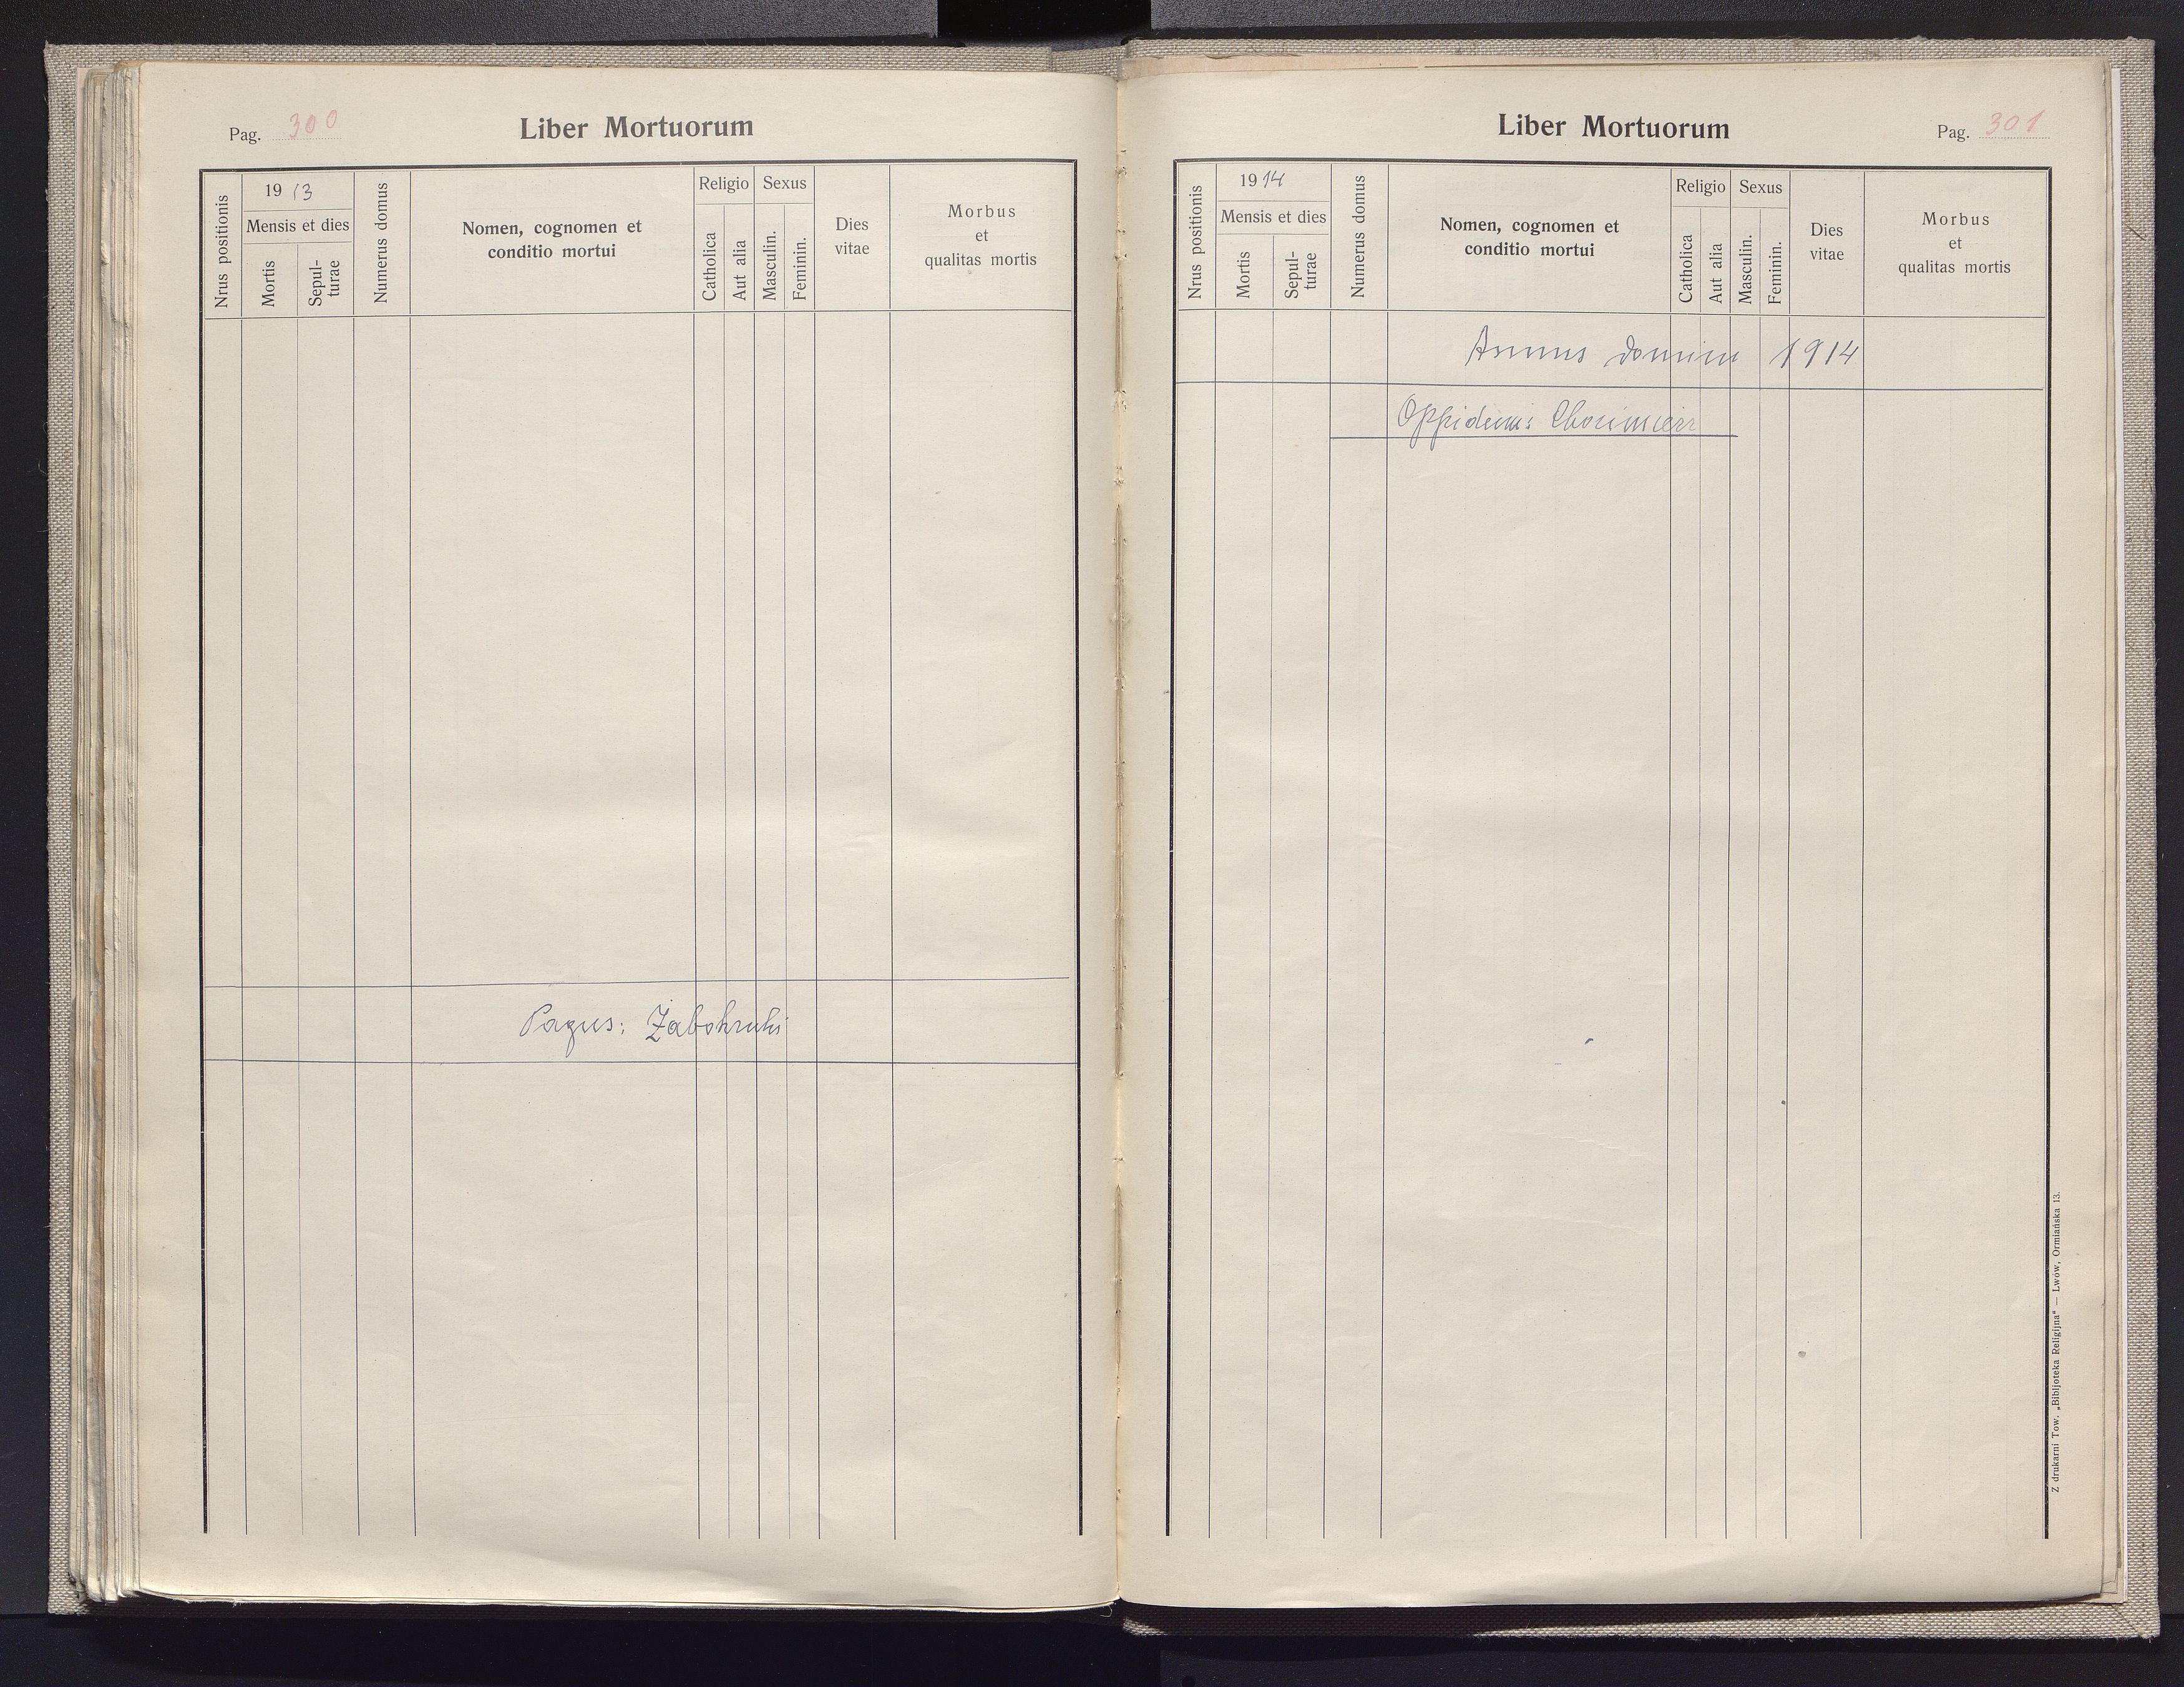 Pag. 300
Liber Mortuorum
Nrus positionis
1913
Mensis et dies
Mortis
Sepul-
turae
Numerus domus
Nomen, cognomen et
conditio mortui
Religio
Catholica
Aut alia
Sexus
Masculin.
Feminin.
Dies
vitae
Morbus
et
qualitas mortis
Pagus: Żabokruki
Liber Mortuorum
Pag. 301
Nrus positionis
1914
Mensis et dies
Mortis
Sepul-
turae
Numerus domus
Nomen, cognomen et
conditio mortui
Religio
Catholica
Aut alia
Sexus
Masculin.
Feminin.
Dies
vitae
Morbus
et
qualitas mortis
Annus domini 1914
Oppidum: Chocimierz
Z drukarni Tow. „Bibljoteka Religijna" — Lwów, Ormiańska 13.